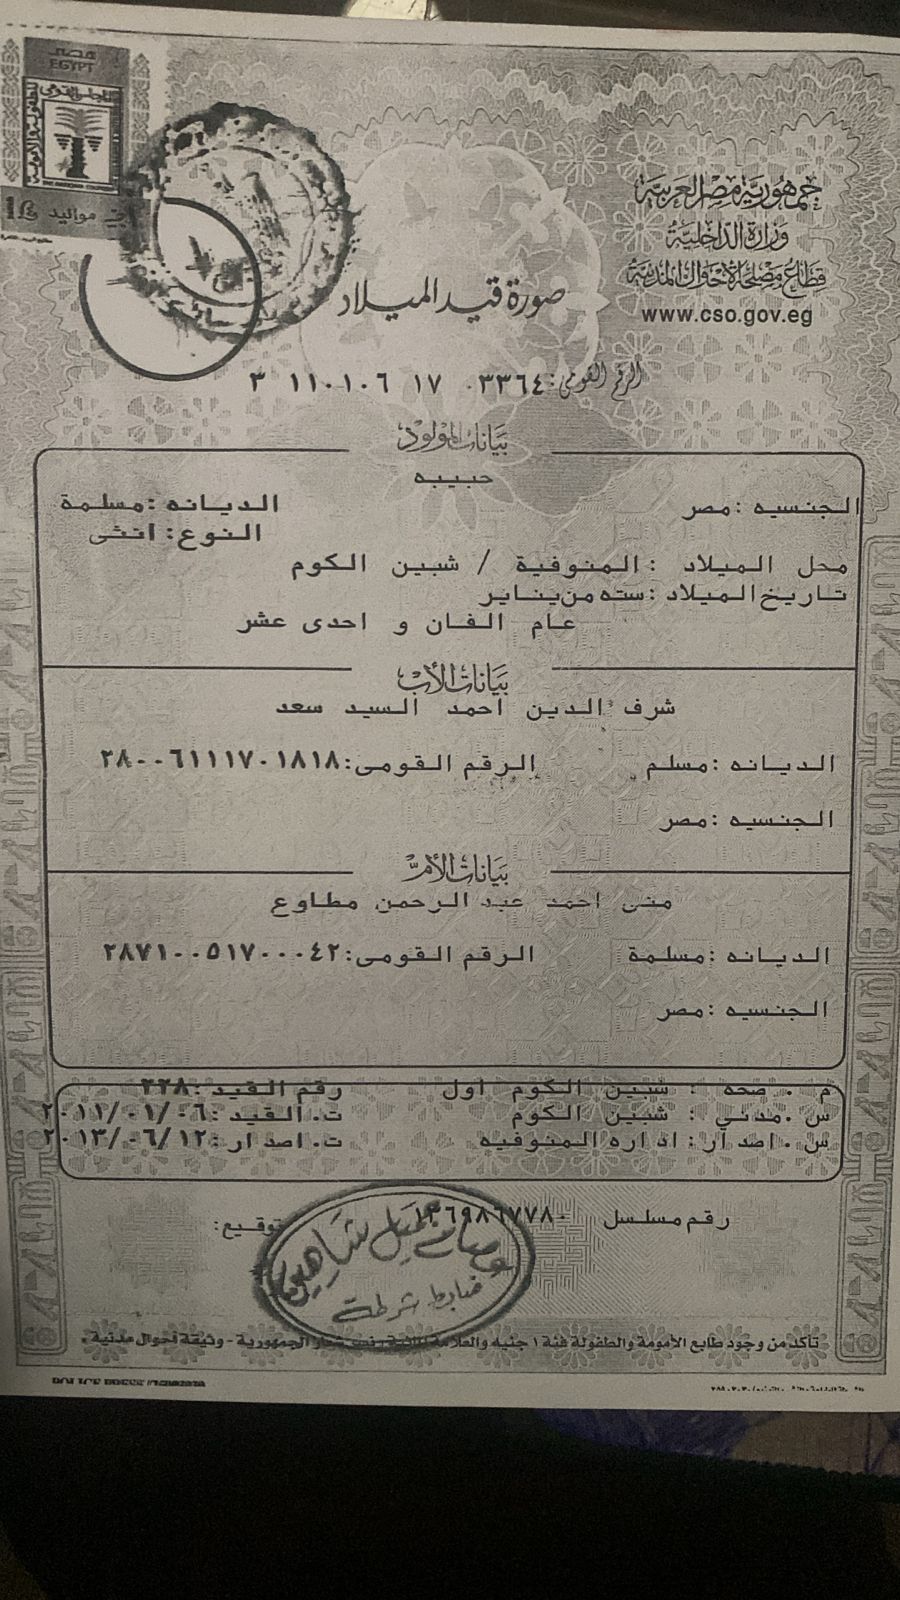 مصر
EGYPT
جمهورية مصر العربية
وزارة الداخلية
قطاع مصلحة الأحوال المدنية
www.cso.gov.eg
صورة قيد الميلاد
الرقم القومى: ٣ ١١٠١٠٦ ١٧ ٠٣٣٦٤
بيانات المولود
حبيبه
الجنسيه :مصر الديانه :مسلمة
النوع: انثى
محل الميلاد :المنوفية / شبين الكوم
تاريخ الميلاد :سته من يناير
عام الفان و احدى عشر
بيانات الأب
شرف الدين احمد السيد سعد
الديانه :مسلم الرقم القومى:٢٨٠٠٦١١١٧٠١٨١٨
الجنسيه :مصر
بيانات الأم
منى احمد عبد الرحمن مطاوع
الديانه :مسلمة الرقم القومى:٢٨٧١٠٠٥١٧٠٠٠٤٢
الجنسيه :مصر
م . صحه : شبين الكوم اول رقم القيد :٢٢٨
س .مدني : شبين الكوم ت. القيد :٢٠١١/٠١/٠٦
س . اصدار: اداره المنوفيه ت. اصدار :٢٠١٣/٠٦/١٢
رقم مسلسل توقيع:
جميل شاهين
ضابط شرطة
تأكد من وجود طابع الأمومة والطفولة فئة ١ جنيه والعلامة المائية نسر شعار الجمهورية - وثيقة أحوال مدنية .